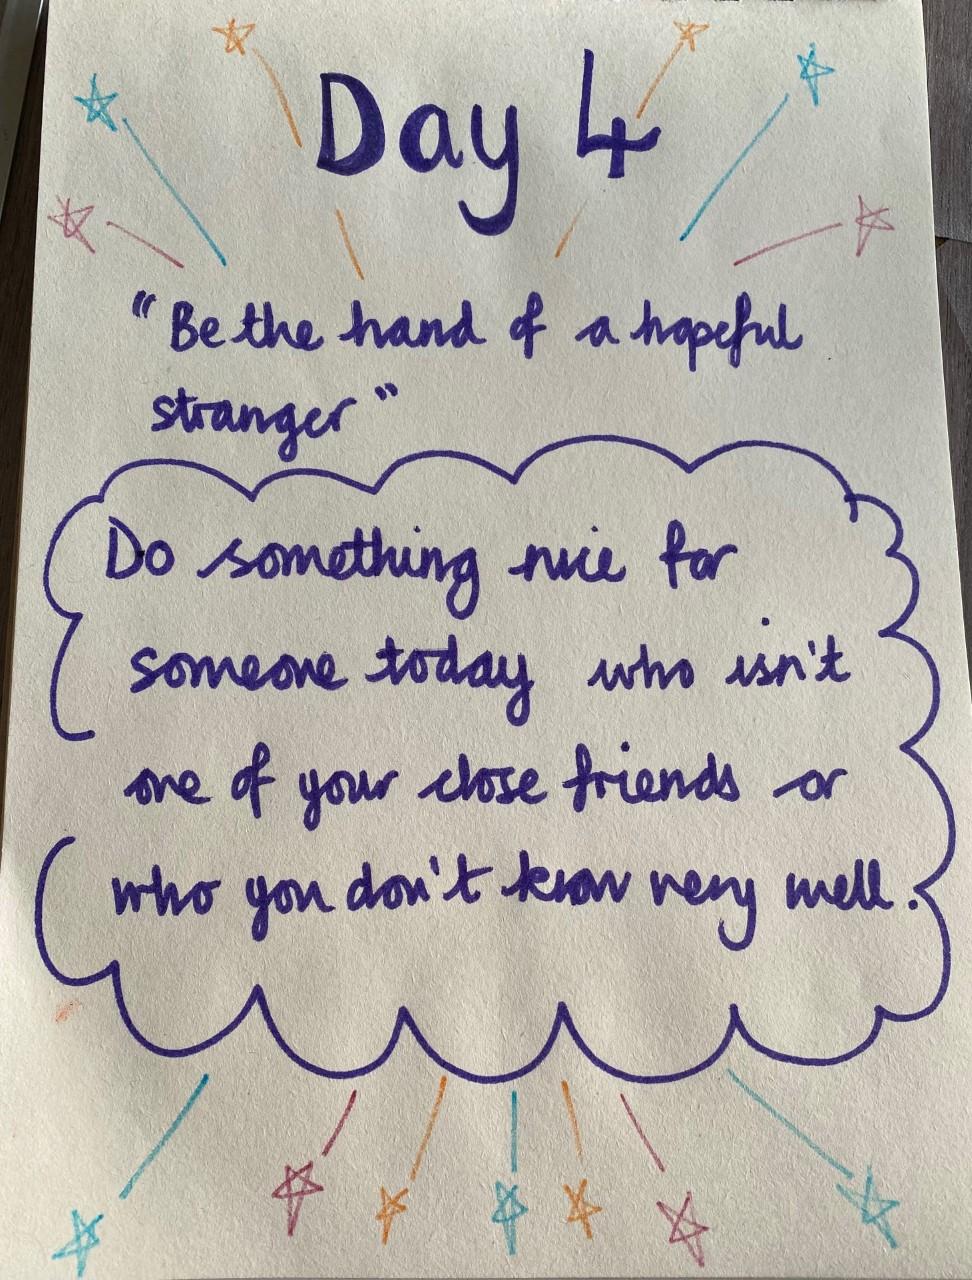 Day 4
"Be the hand of a hopeful
stranger"
Do something nice for
someone today who isn't
one of your close friends or
who you don't know very well.